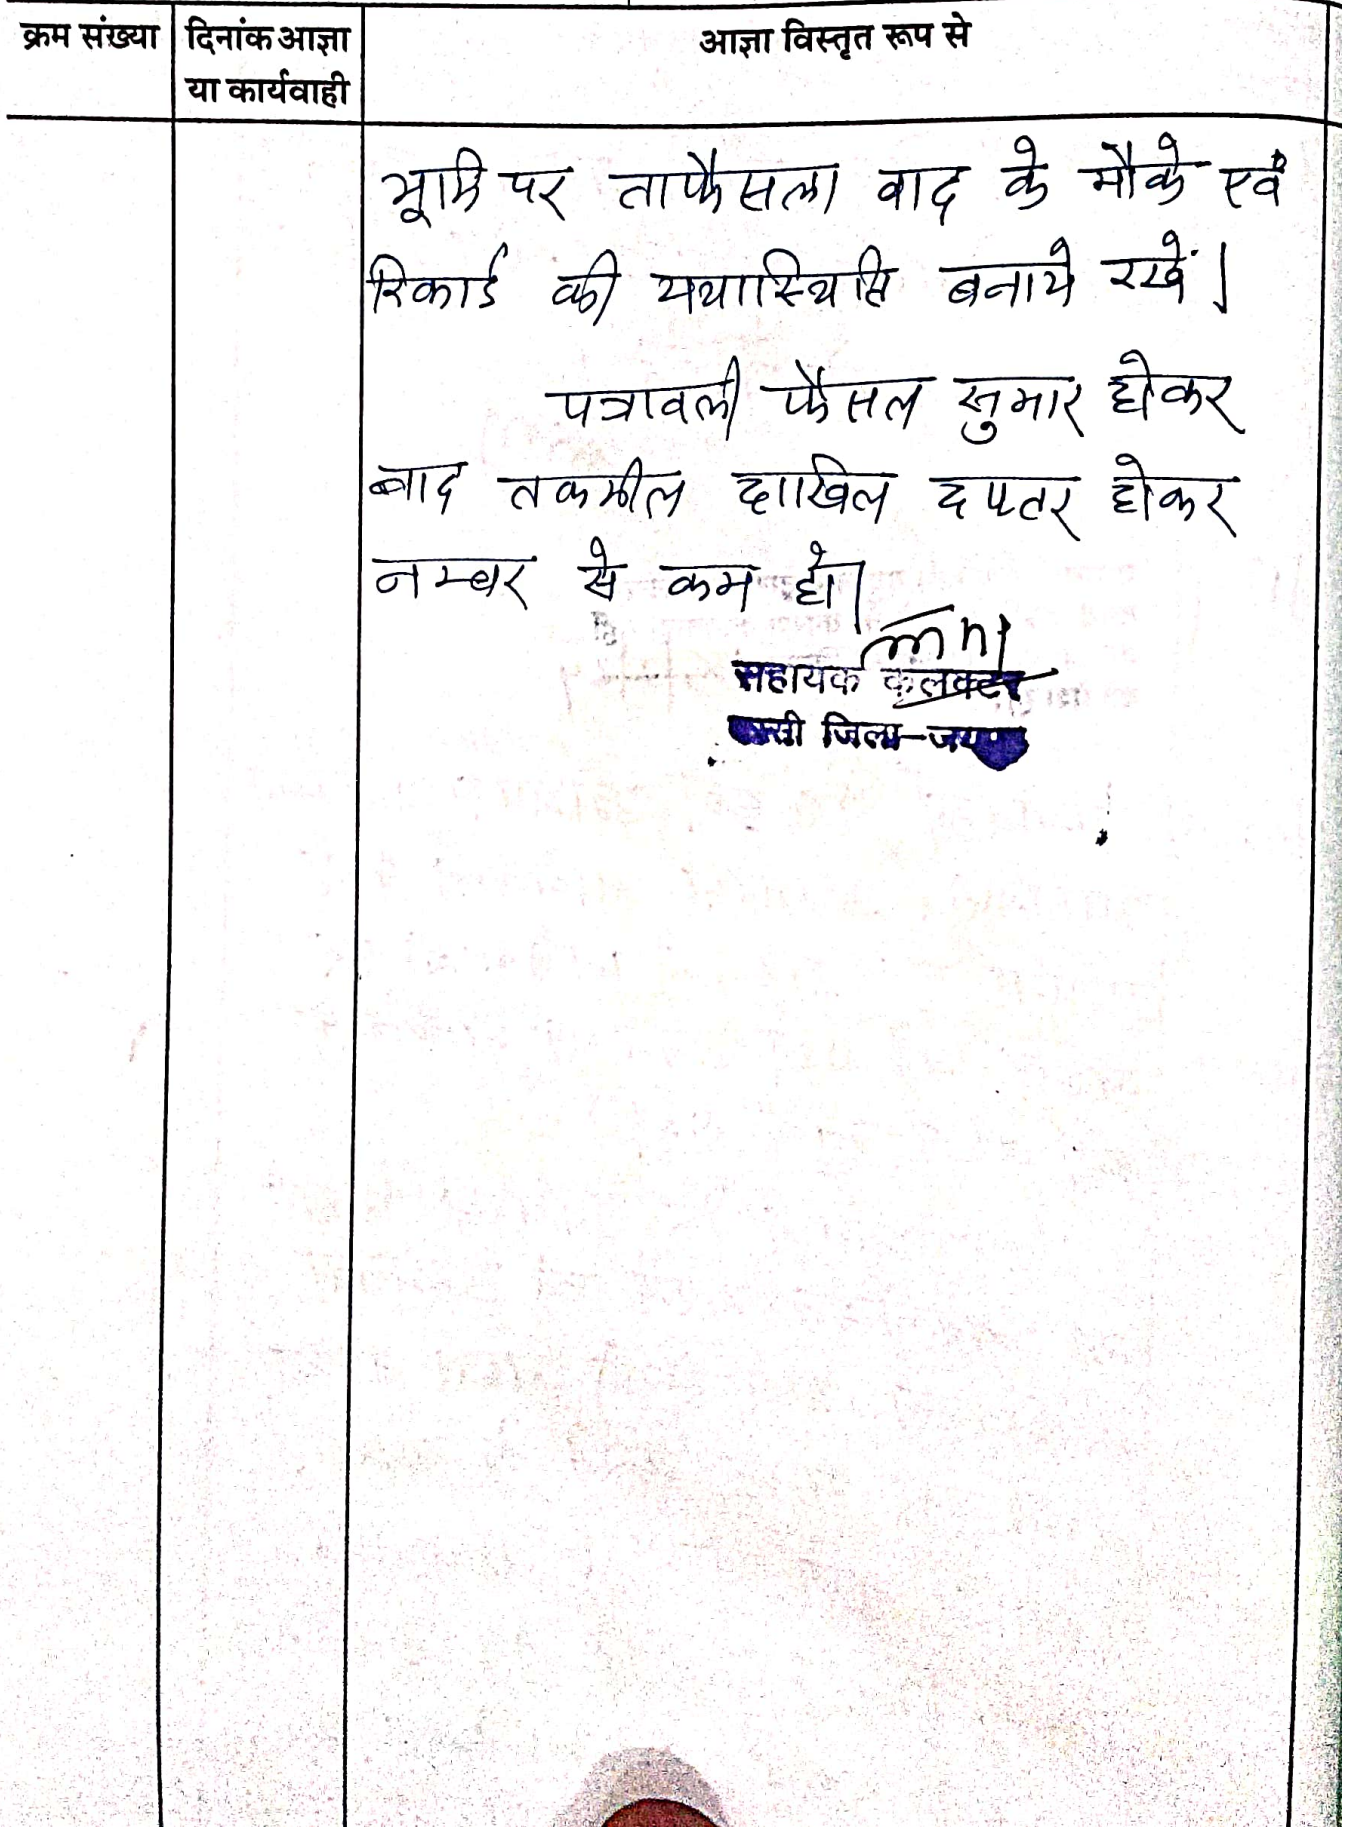 क्रम संख्या
दिनांक आज्ञा
या कार्यवाही
आज्ञा विस्तृत रूप से
भूमि पर ताफैसला वाद के मौके एवं
रिकार्ड की यथास्थिति बनाये रखें।
पत्रावली फैसल सुमार होकर
बाद तकमील दाखिल दफ्तर होकर
नम्बर से कम हो।
सहायक कलक्टर
जिला-